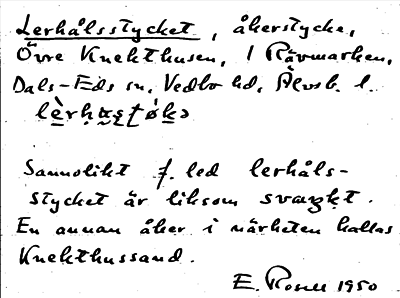 Lerhålsstycket, åkerstycke,
Övre Knekthusen, 1 Rävmarken,
Dals-Eds sn, Vedbo hd, Älvsb. l.
Sannolikt f. led lerhåls-
stycket är liksom svagt.
En annan åker i närheten kallas
Knekthussand.
E. Rosell 1950